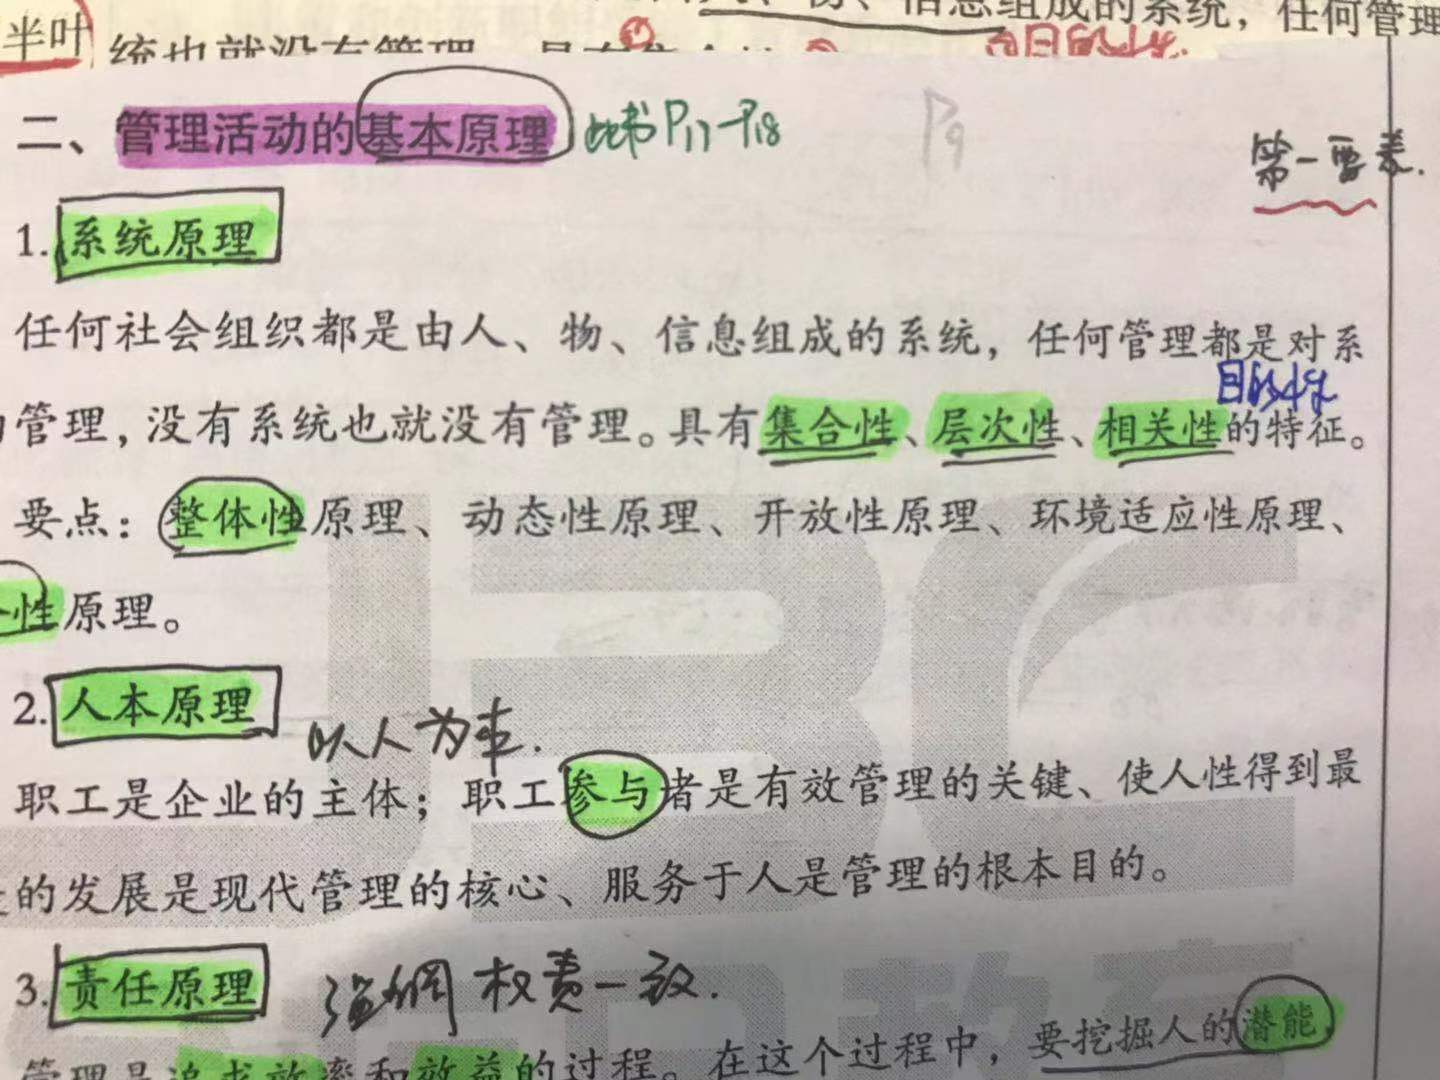 半叶
物、信息组成的系统，任何管理
统也就没有管理
二、管理活动的基本原理 此书P11-P18 P9
第一要素.
1. 系统原理
任何社会组织都是由人、物、信息组成的系统，任何管理都是对系
目的性
管理，没有系统也就没有管理。具有集合性、层次性、相关性的特征。
要点：整体性原理、动态性原理、开放性原理、环境适应性原理、
性原理。
2. 人本原理 以人为本.
职工是企业的主体；职工参与者是有效管理的关键、使人性得到最
的发展是现代管理的核心、服务于人是管理的根本目的。
3. 责任原理 强调 权责一致.
管理是追求效率和效益的过程。在这个过程中，要挖掘人的潜能